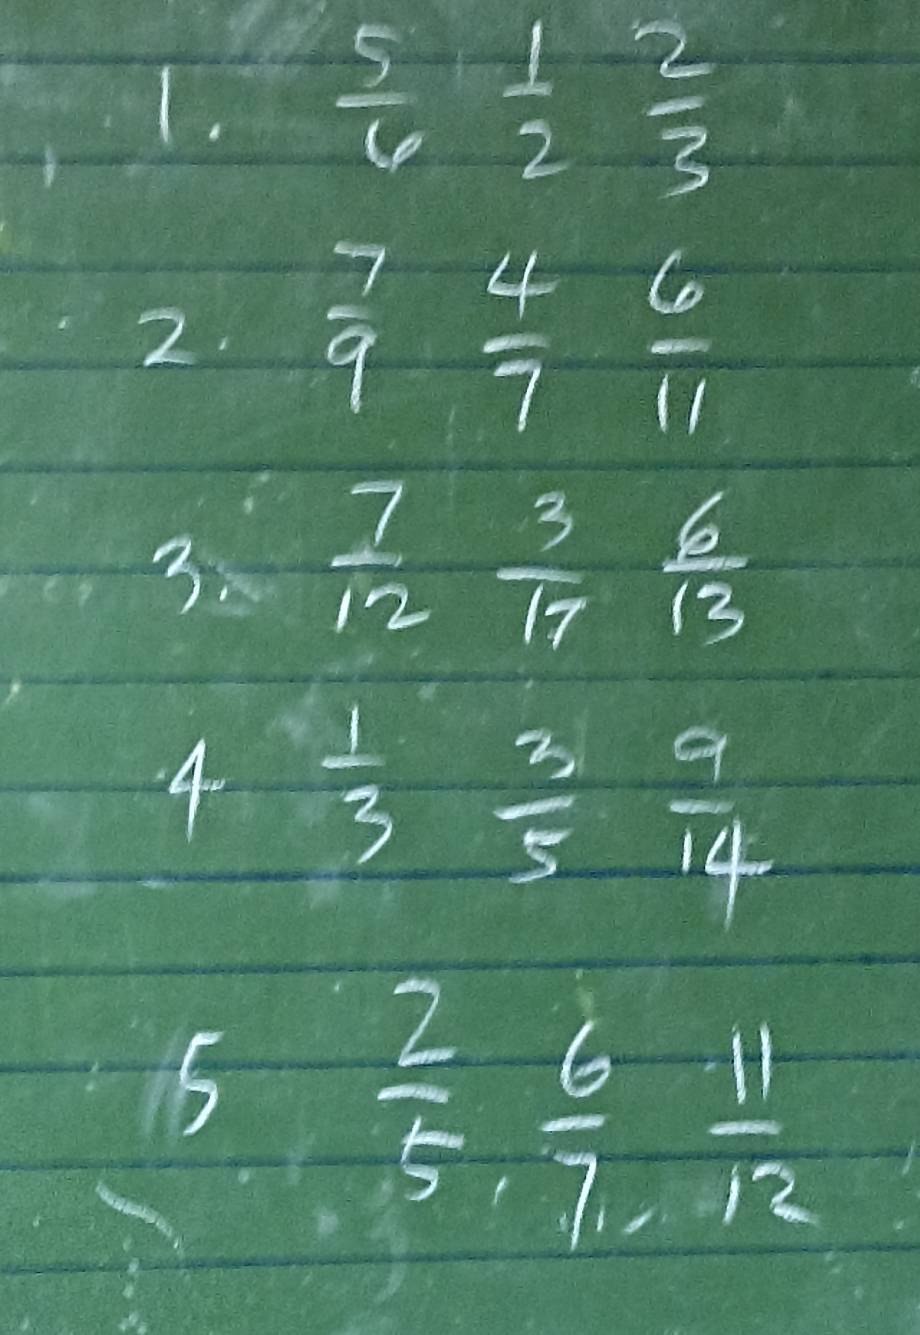 1. 5/6 1/2 2/3
2. 7/9 4/7 6/11
3. 7/12 3/17 6/13
4 1/3 3/5 9/14
5 2/5, 6/7, 11/12